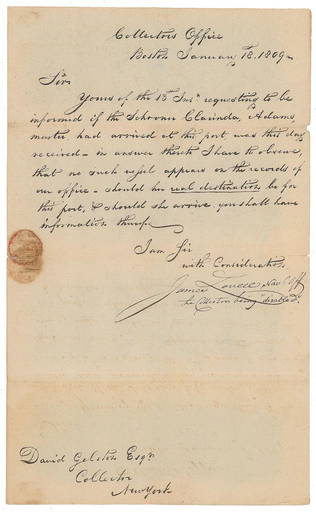 Collectors Office
Boston January 18. 1809.
Sir
Yours of the 13th Inst. requesting to be
informed if the Schooner Clarinda, Adams,
master had arrived at this port was this day
received - in answer thereto I have to observe,
that no such vessel appears on the records of
our office - should her real destination be for
this port, & should she arrive, you shall have
information thereof
I am Sir
with Consideration
James Lovell Nav. Off
the Collector being disabled.
David Gelston Esqr.
Collector
New York